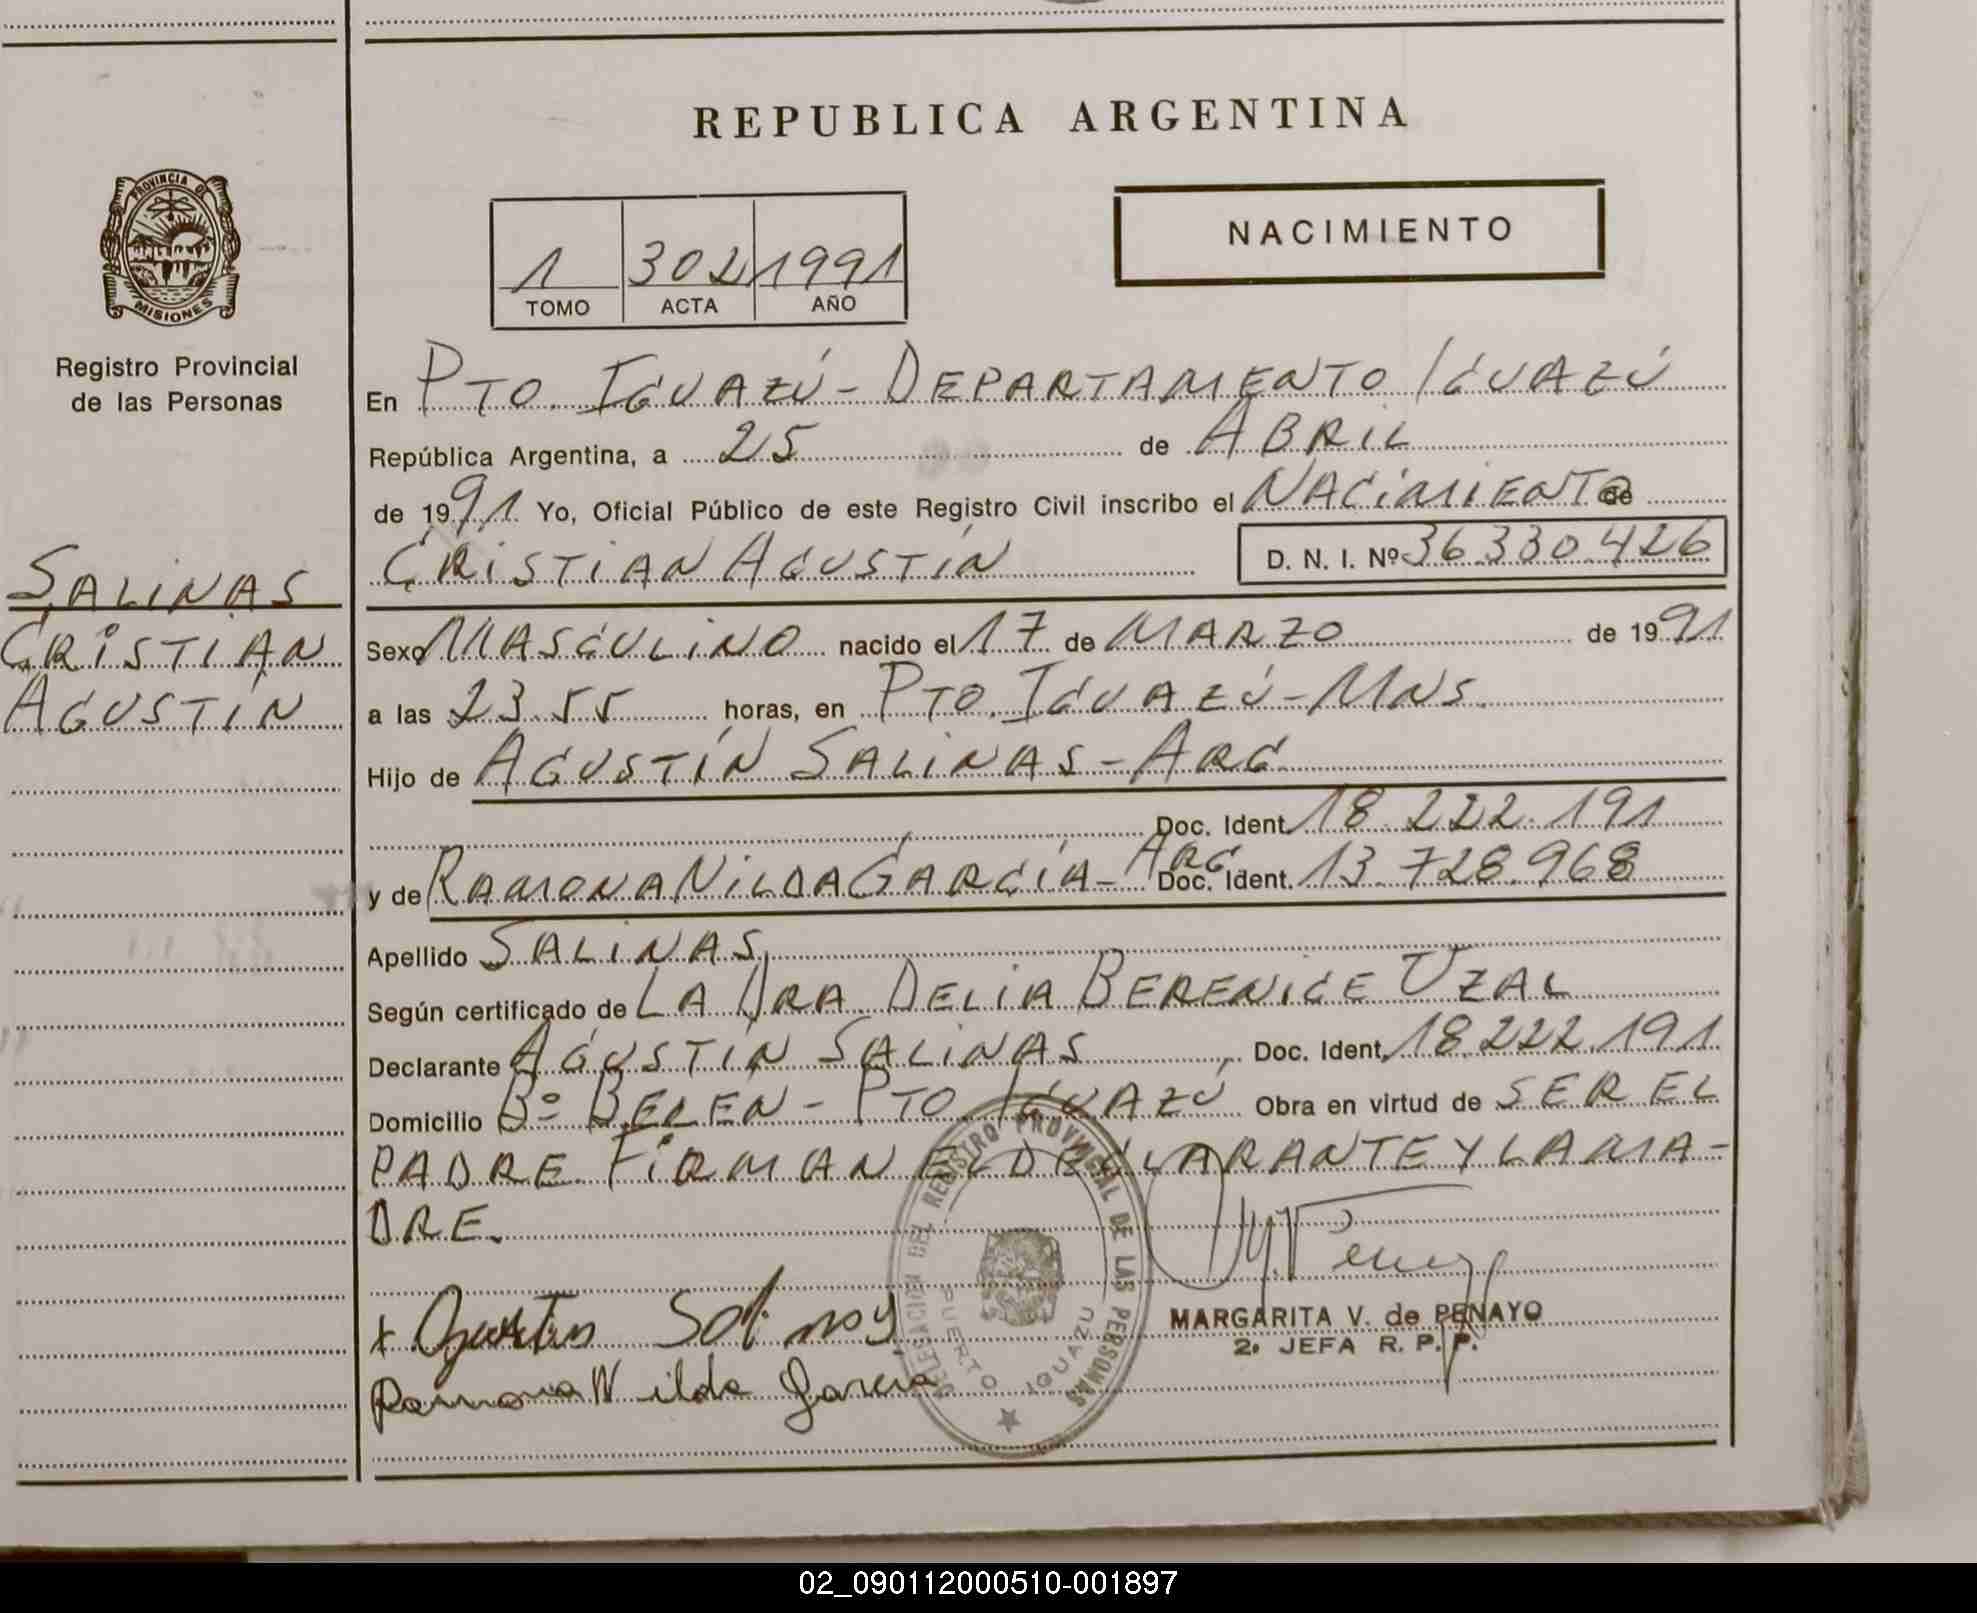 REPUBLICA ARGENTINA
PROVINCIA DE
MISIONES
Registro Provincial
de las Personas
NACIMIENTO
1 302 1991
TOMO ACTA AÑO
En PTO. IGUAZÚ - DEPARTAMENTO IGUAZÚ
República Argentina, a 25 de ABRIL
de 1991 Yo, Oficial Público de este Registro Civil inscribo el NACIMIENTO de
CRISTIAN AGUSTÍN D. N. I. Nº 36330.426
SALINAS
CRISTIAN
AGUSTÍN
Sexo MASCULINO nacido el 17 de MARZO de 1991
a las 23.55 horas, en PTO. IGUAZÚ - MNS.
Hijo de AGUSTÍN SALINAS - ARG
Doc. Ident. 18.222.191
y de RAMONA NILDA GARCÍA - ARG Doc. Ident. 13.728.968
Apellido SALINAS
Según certificado de LA DRA. DELIA BERENICE UZAL
Declarante AGUSTÍN SALINAS Doc. Ident. 18.222.191
Domicilio Bº BELEN - PTO IGUAZÚ Obra en virtud de SER EL
PADRE. FIRMAN EL DECLARANTE Y LA MA-
DRE.
DELEGACION DEL REGISTRO PROVINCIAL DE LAS PERSONAS
PUERTO IGUAZU
x Agustin Salinas
Ramona Nilda Garcia
MARGARITA V. de PENAYO
2ª JEFA R. P. P.
02_090112000510-001897